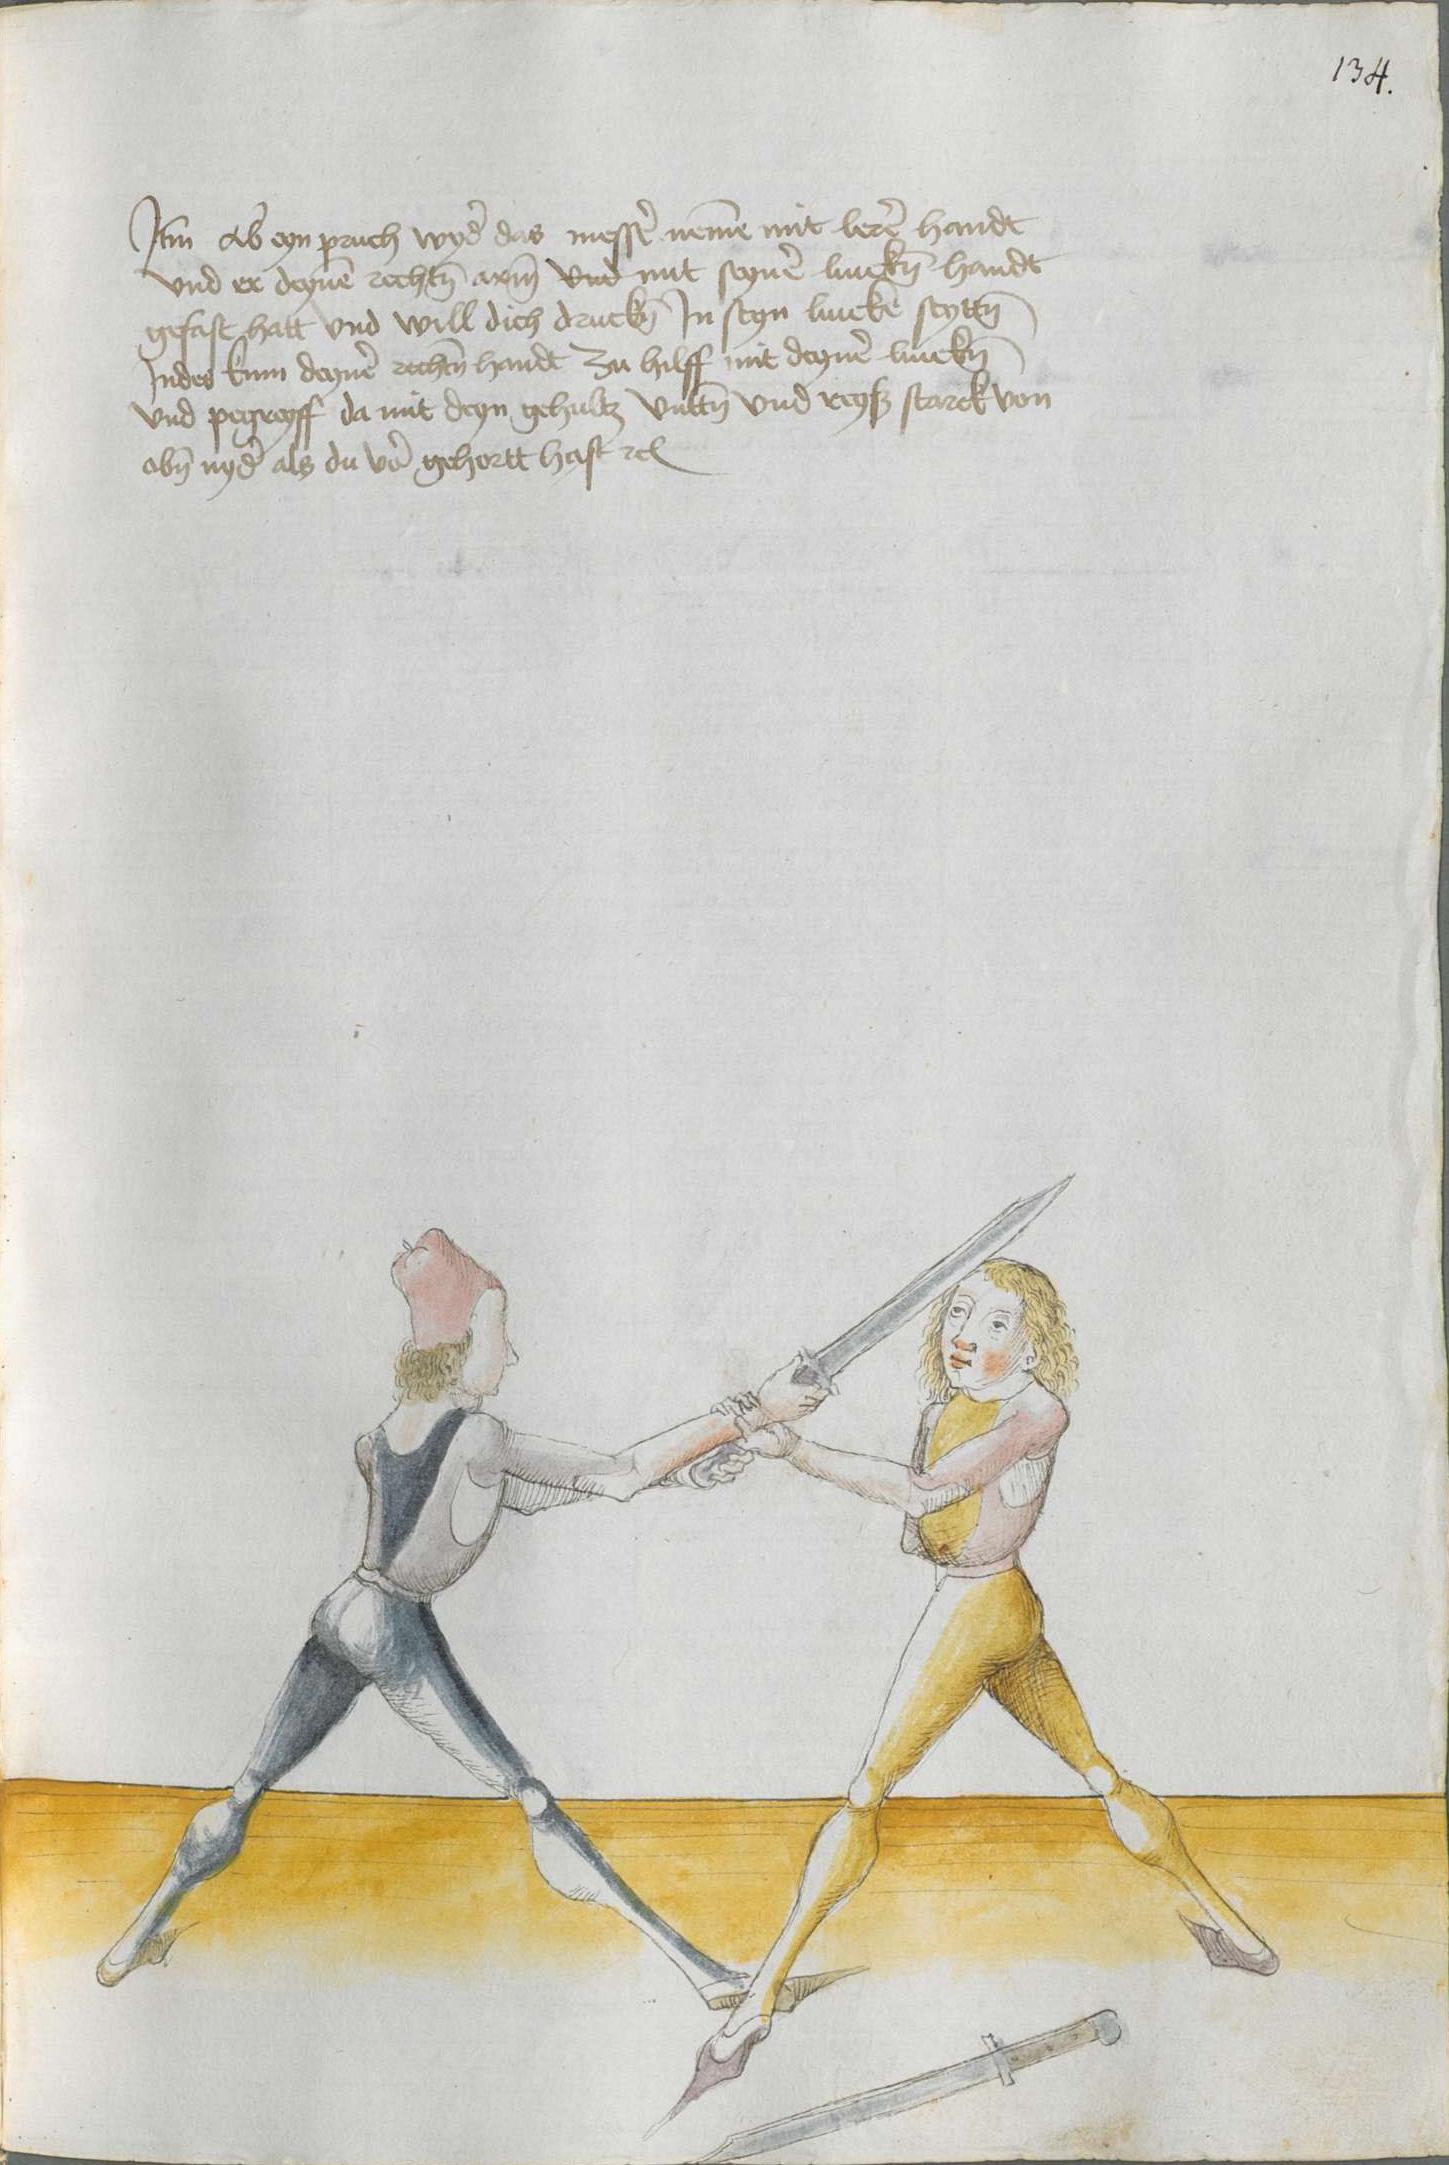 134.
Itm̄ Ab eyn pruch wyd̄ das messr̄ nem̄e mit lerr̄ handt
vnd er deynē rechtn̄ arm̄ vnd mit seynr̄ linckn̄ handt
gefast hatt vnd will dich druckn̄ In seyn lincke seyttn̄
Indes kum deynr̄ rechtn̄ handt zu hilff mit deynr̄ linckn̄
vnd pegreyff da mit deyn gehultz vnttn̄ vnd reyß starck von
obn̄ nyd̄ als du vor̄ gehortt hast rc